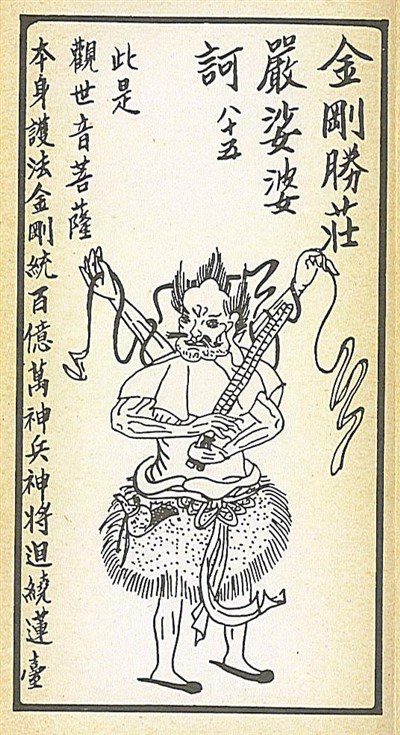 金剛勝莊
嚴娑婆
訶 八十五
此是
觀世音菩薩
本身護法金剛統百億萬神兵神將迴繞蓮臺